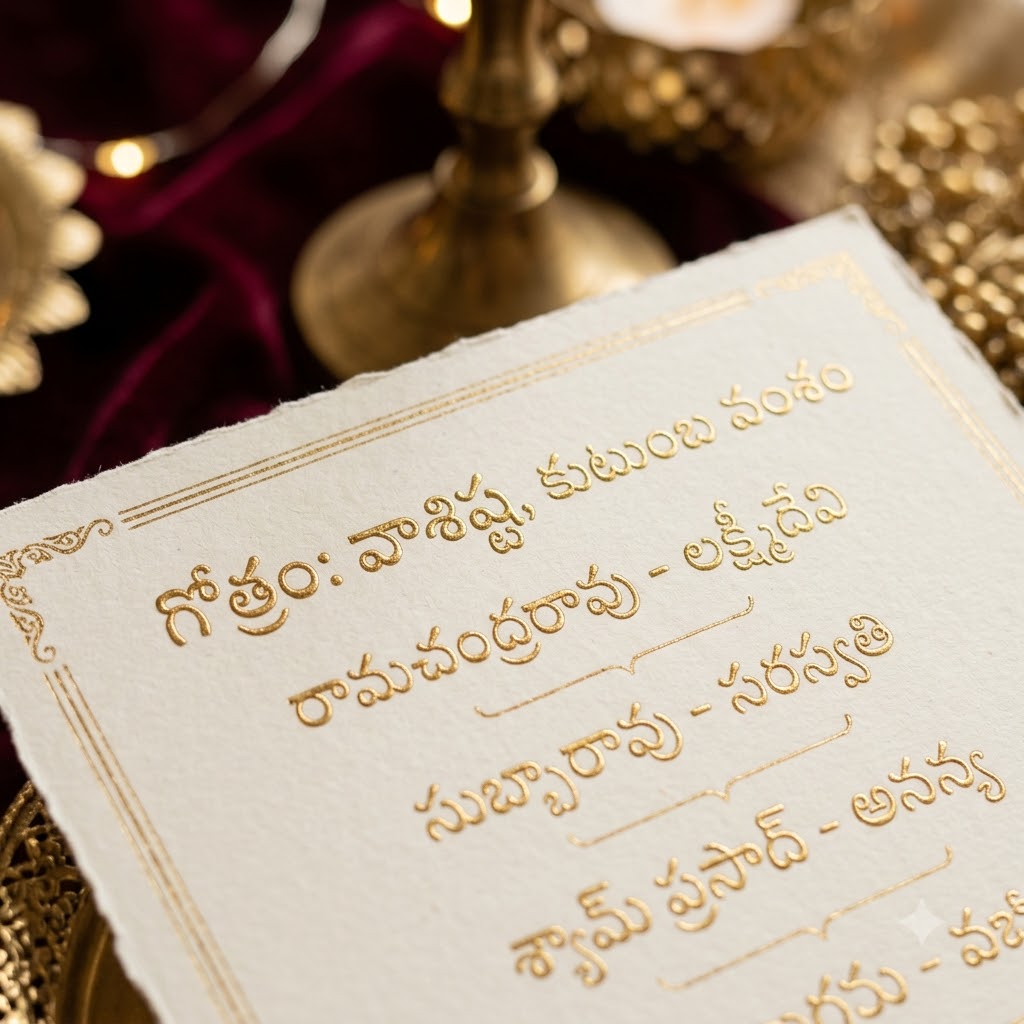 గోత్రం: వాశిష్ట, కుటుంబ వంశం
రామచంద్రరావు - లక్ష్మీదేవి
సుబ్బారావు - సరస్వతి
శ్యామ్ ప్రసాద్ - అనన్య